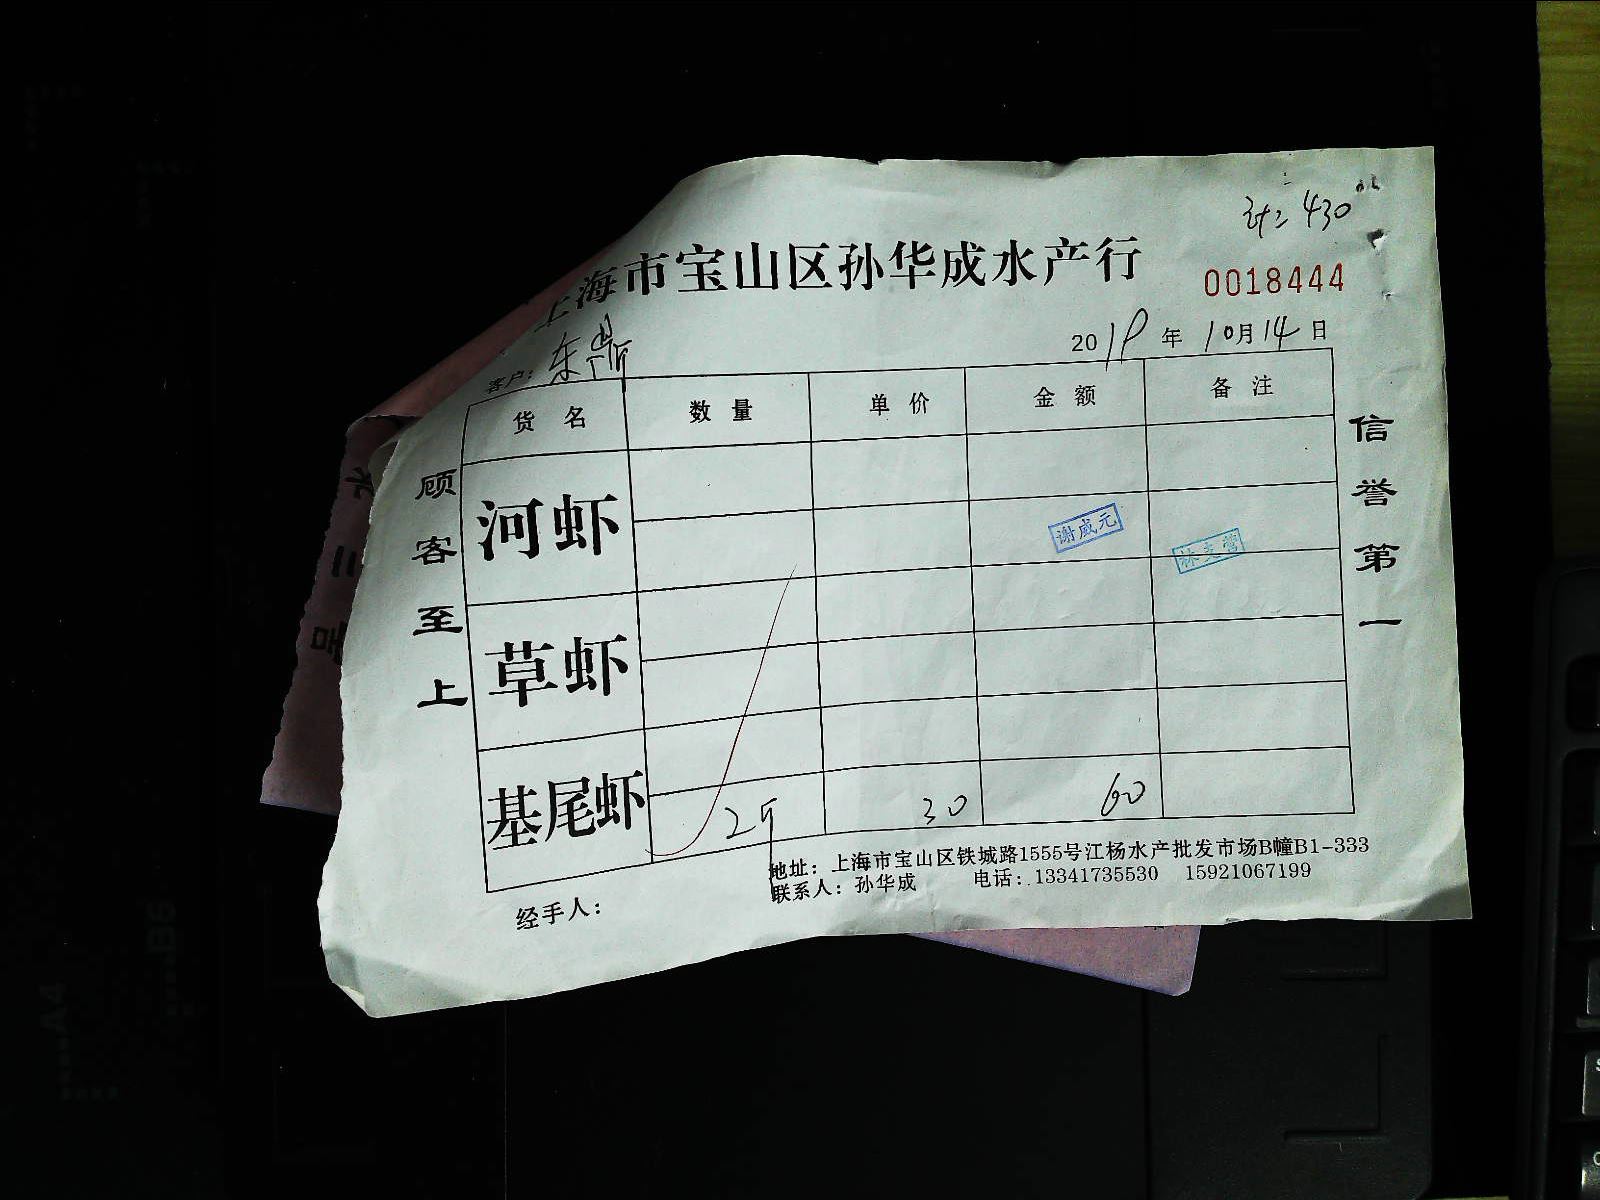 计: 430
上海市宝山区孙华成水产行
0018444
客户:
2018 年 10月 14 日
货名 数量 单价 金额 备注
河虾
草虾
基尾虾 2斤 30 60
谢威元
顾客至上
信誉第一
地址: 上海市宝山区铁城路1555号江杨水产批发市场B幢B1-333
联系人: 孙华成 电话: 13341735530 15921067199
经手人: